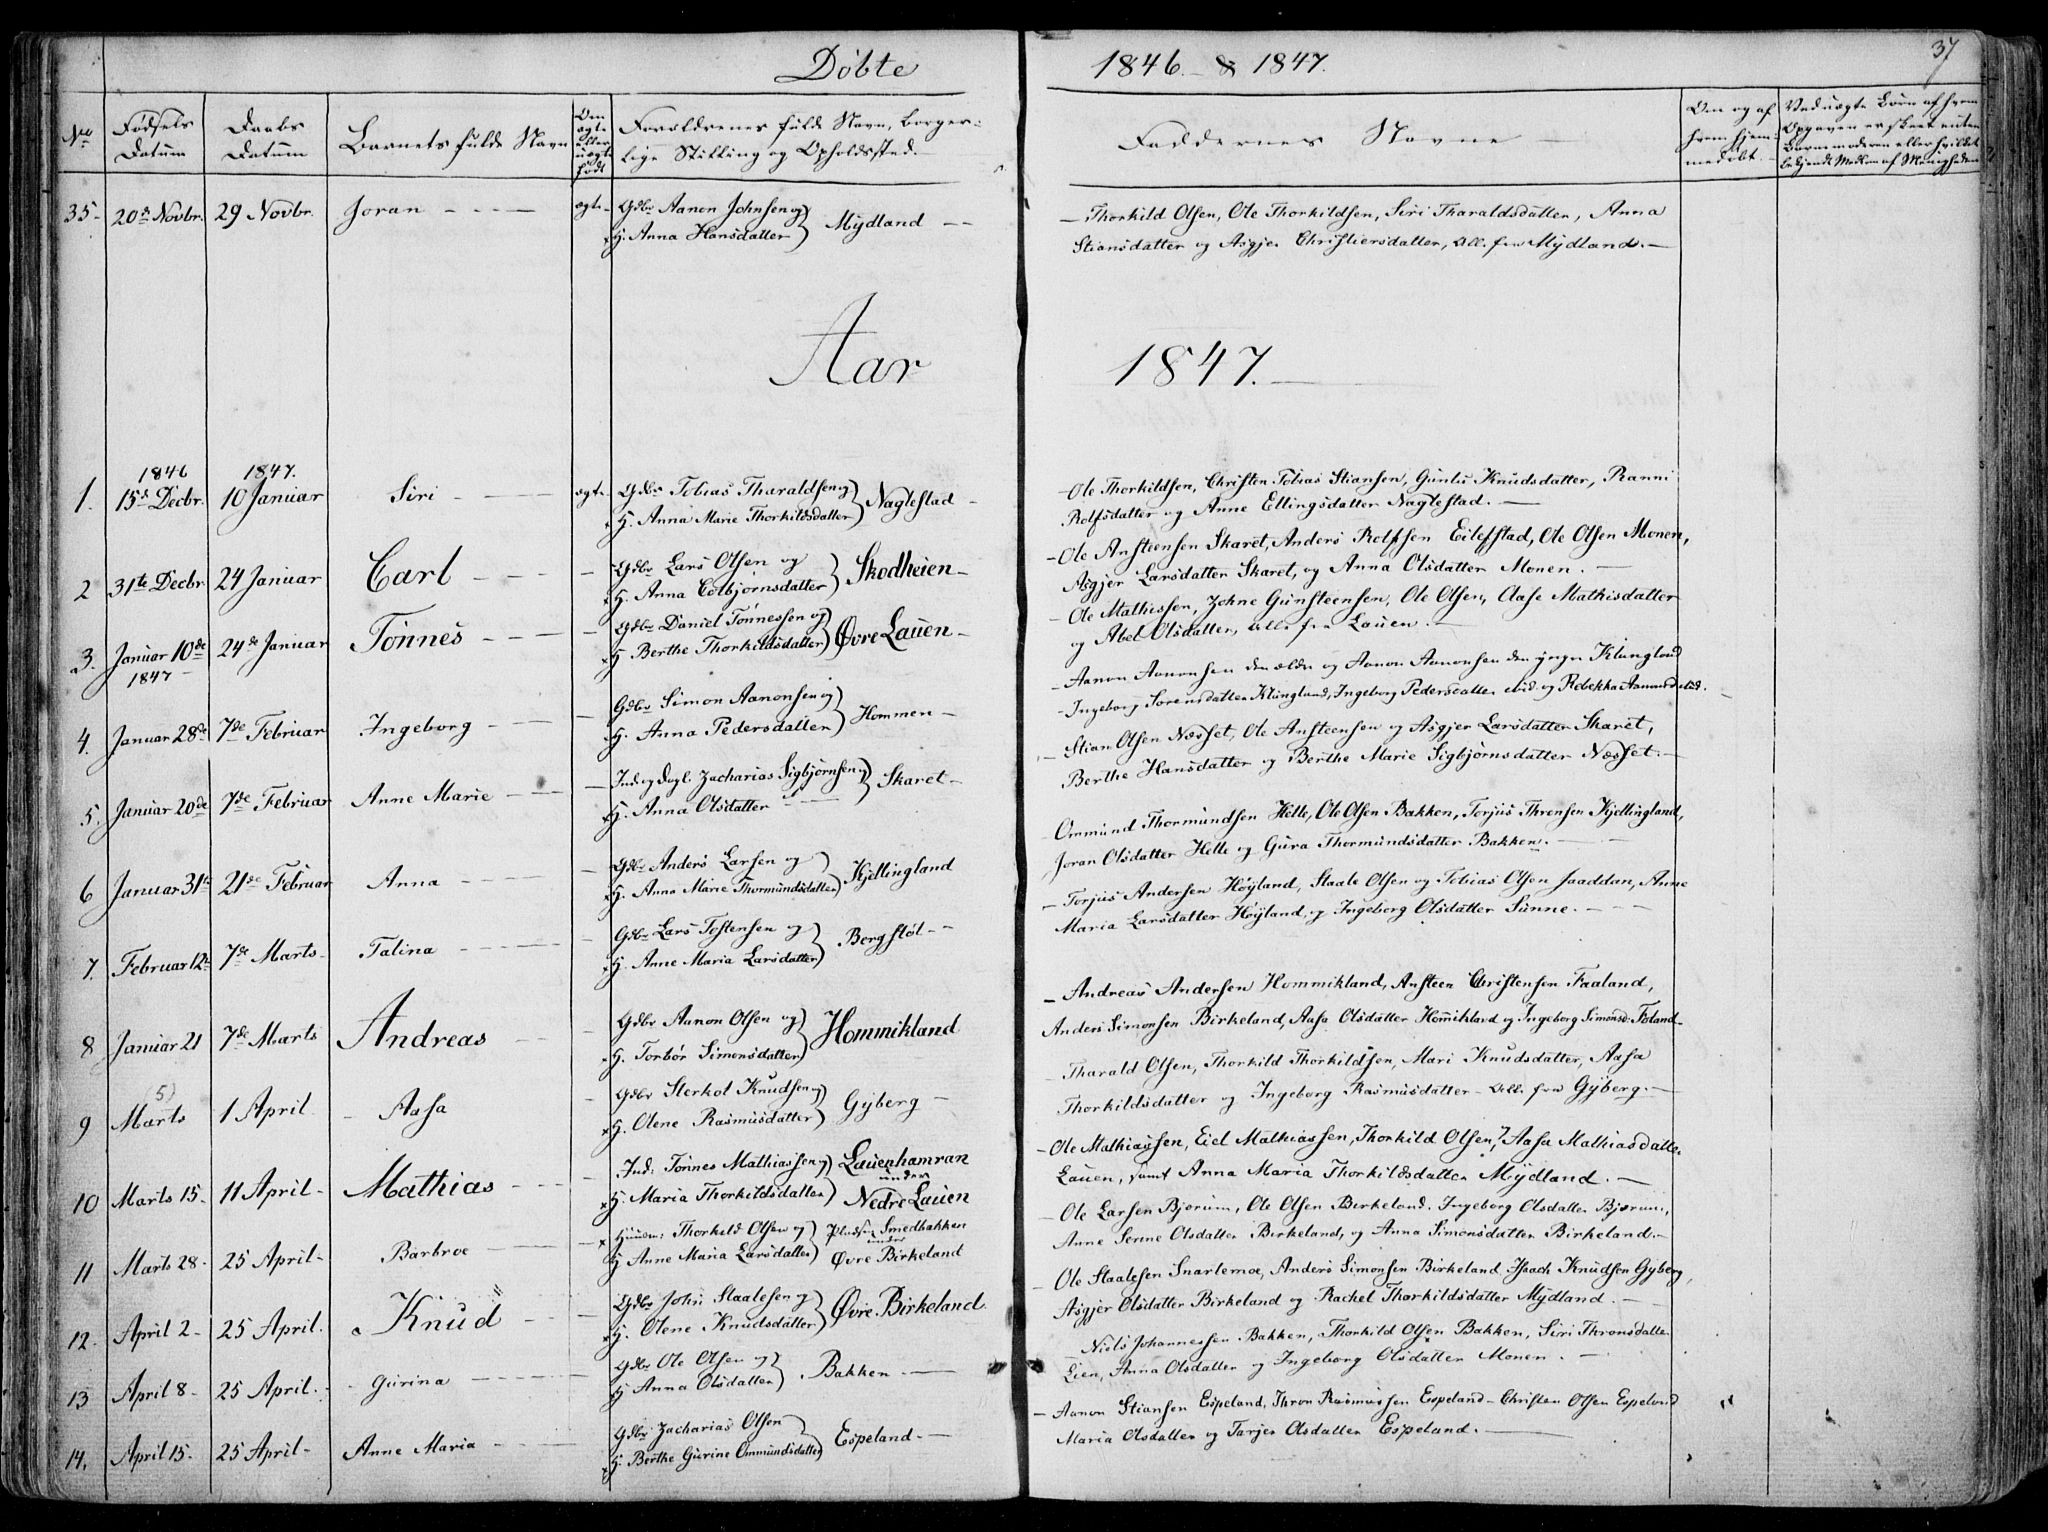 Døbte
1846. & 1847.
37
No
Fødsels Datum
Daabs Datum
Barnets fulde Navn
Om ægte eller uægte født
Forældrenes fulde Navn, borger-
lige Stilling og Opholdssted.
Faddernes Navne
Om og af hvem hjem-
medøbt.
Ved uægte Børn af hvem
Opgaven er skeet enten
Barnemoderen eller hvilket
bekjendt Medlem af Menigheden
35. 20de Novbr. 29 Novbr. Joran ægte Gdbr Aanon Johnsen og
H. Anna Hansdatter Mydland
Thorkild Olsen, Ole Thorkildsen, Siri Tharaldsdatter, Anna
Stiansdatter og Asgjer Christiersdatter, Alle fra Mydland.
Aar
1847.
1846 1847.
1. 15de Decbr. 10 Januar Siri ægte Gdbr Tobias Tharaldsen og
H. Anna Marie Thorkildsdatter Naglestad
Ole Thorkildsen, Christen Tobias Stiansen, Gunlu Knudsdatter, Ranni
Rolfsdatter og Anne Ellingsdatter Naglestad.
2 31te Decbr 24 Januar Carl Gdbr Lars Olsen og
H. Anna Colbjørnsdatter Skodheien
Ole Ansteensen Skaret, Anders Rolfsen Eilefstad, Ole Olsen Monen,
Asgjer Larsdatter Skaret, og Anna Olsdatter Monen.
3. Januar 10de 24de Januar Tönnes Gdbr Daniel Tönnessen og
1847
H Berthe Thorkildsdatter Øvre Lauen
Ole Mathissen, Zohne Gunsteensen, Ole Olsen, Aase Mathisdatter
og Abel Olsdatter, Alle fra Lauen.
4. Januar 28de 7de Februar Ingeborg Gdbr Simon Aanonsen og
H. Anna Pedersdatter Hommen
Aanon Aanonsen den ældre og Aanon Aanonsen den yngre Klungland
Ingeborg Sørensdatter Klungland, Ingeborg Pedersdatter ibid. og Rebekka Aanonsd. ibid.
5. Januar 20de 7de Februar Anne Marie Ind og Dagl. Zacharias Sigbjørnsen og
H. Anna Olsdatter Skaret
Stian Olsen Næsset, Ole Ansteensen og Asgjer Larsdatter Skaret,
Berthe Hansdatter og Berthe Marie Sigbjørnsdatter Næsset.
6 Januar 31te 21de Februar Anna Gdbr Anders Larsen og
H. Anna Marie Thormundsdatter Kjellingland
Ommund Thormundsen Helle, Ole Olsen Bakken, Torjus Thronsen Kjellingland,
Joran Olsdatter Helle og Gura Thormundsdatter Bakken.
7. Februar 12te 7de Marts Talina Gdbr Lars Tostensen og
H. Anne Maria Larsdatter Bergstøl
Torjus Andersen Høyland, Staale Olsen og Tobias Olsen Jaaddan, Anne
Maria Larsdatter Høyland, og Ingeborg Olsdatter Sunne.
8 Januar 21 7de Marts Andreas Gdbr Aanon Olsen og
H. Torbör Simonsdatter Hommikland
Andreas Andersen Hommikland, Ansteen Christensen Faaland,
Anders Simonsen Birkeland, Aasa Olsdatter Hommikland og Ingeborg Simonsd. Foland
9 Marts (5) 1 April Aasa Gdbr Sterkol Knudsen og
H. Olene Rasmusdatter Gyberg
Tharald Olsen, Thorkild Thorkildsen, Mari Knudsdatter, Aasa
Thorkildsdatter og Ingeborg Rasmusdatter Alle fra Gyberg.
10 Marts 15. 11 April Mathias Ind: Tönnes Mathiassen og Lauenhamran
under
H Maria Thorkildsdatter Nedre Lauen
Ole Mathiassen, Eiel Mathiassen, Thorkild Olsen, Aasa Mathiasdatter
Lauen, samt Anna Maria Thorkildsdatter Mydland.
11 Marts 28. 25 April Barbroe Huusm: Thorkild Olsen og Pladsen Smedbakken
under
H Anne Maria Larsdatter Øvre Birkeland
Ole Larsen Bjørum, Ole Olsen Birkeland. Ingeborg Olsdatter Bjørum,
Anne Serine Olsdatter Birkeland, og Anna Simonsdatter Birkeland.
12. April 2 25 April. Knud Gdbr John Staalesen og
H. Olene Knudsdatter Øvre Birkeland.
Ole Staalesen Snartemoe, Anders Simonsen Birkeland Isach Knudsen Gyberg,
Asgjer Olsdatter Birkeland og Rachel Thorkildsdatter Mydland.
13 April 8 25 April. Gurina Gdbr Ole Olsen og
H Anna Olsdatter Bakken
Niels Johannessen Bakken, Thorkild Olsen Bakken, Siri Thronsdatter
Lien, Anna Olsdatter og Ingeborg Olsdatter Monen.
14. April 15. 25 April Anne Maria Gdbr Zacharias Olsen
H. Berthe Gurine Ommundsdatter Espeland
Aanon Stiansen Espeland, Thron Rasmussen Espeland Christen Olsen Espeland
Maria Olsdatter og Tarjer Olsdatter Espeland.